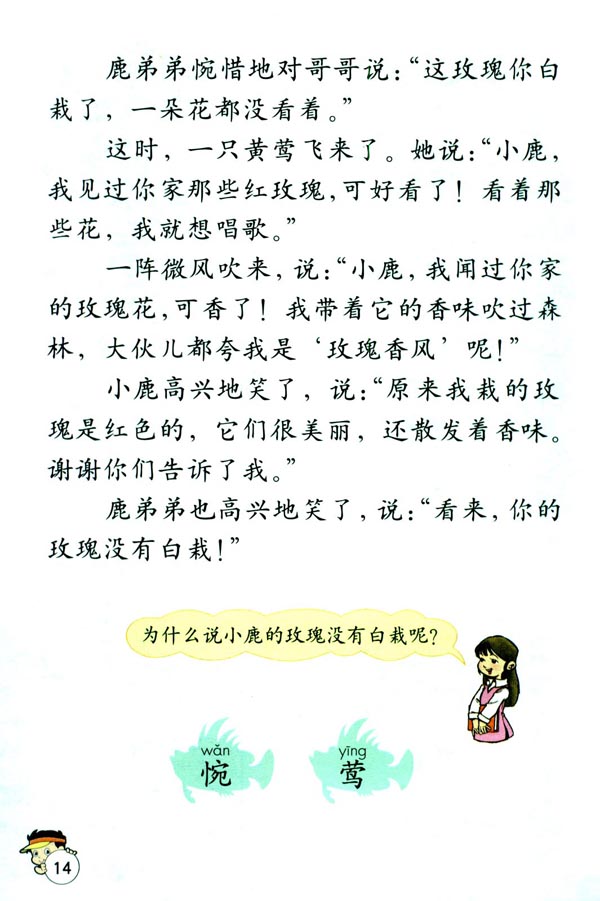 鹿弟弟惋惜地对哥哥说：“这玫瑰你白
栽了，一朵花都没看着。”
这时，一只黄莺飞来了。她说：“小鹿，
我见过你家那些红玫瑰，可好看了！看着那
些花，我就想唱歌。”
一阵微风吹来，说：“小鹿，我闻过你家
的玫瑰花，可香了！我带着它的香味吹过森
林，大伙儿都夸我是‘玫瑰香风’呢！”
小鹿高兴地笑了，说：“原来我栽的玫
瑰是红色的，它们很美丽，还散发着香味。
谢谢你们告诉了我。”
鹿弟弟也高兴地笑了，说：“看来，你的
玫瑰没有白栽！”
为什么说小鹿的玫瑰没有白栽呢？
wǎn yīng
惋 莺
14